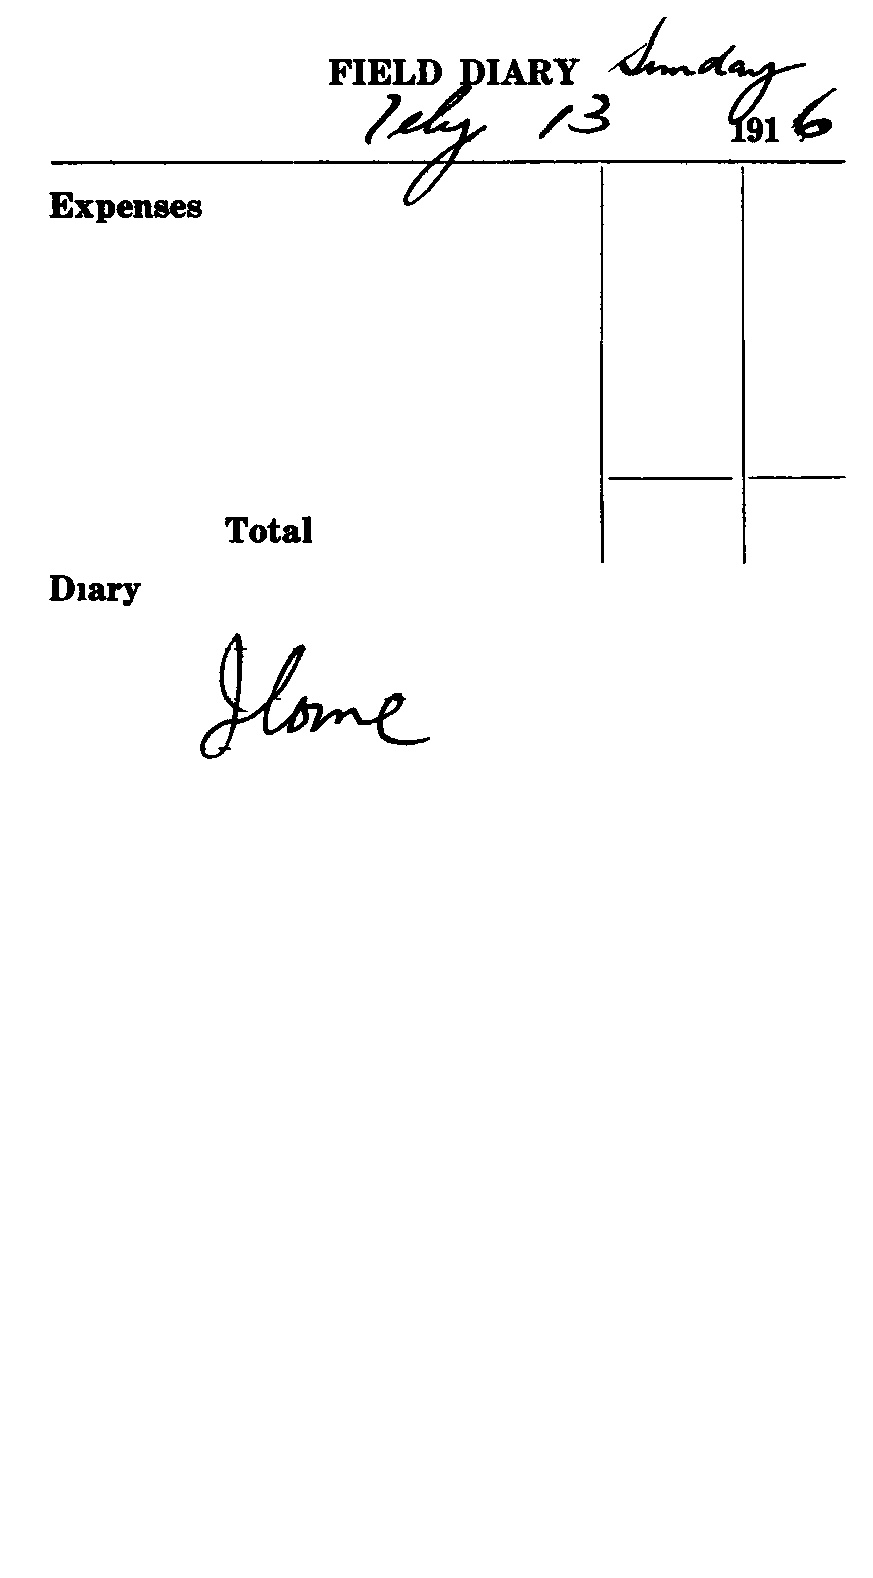 FIELD DIARY Sunday
Feby 13 1916
Expenses
Total
Diary
Home